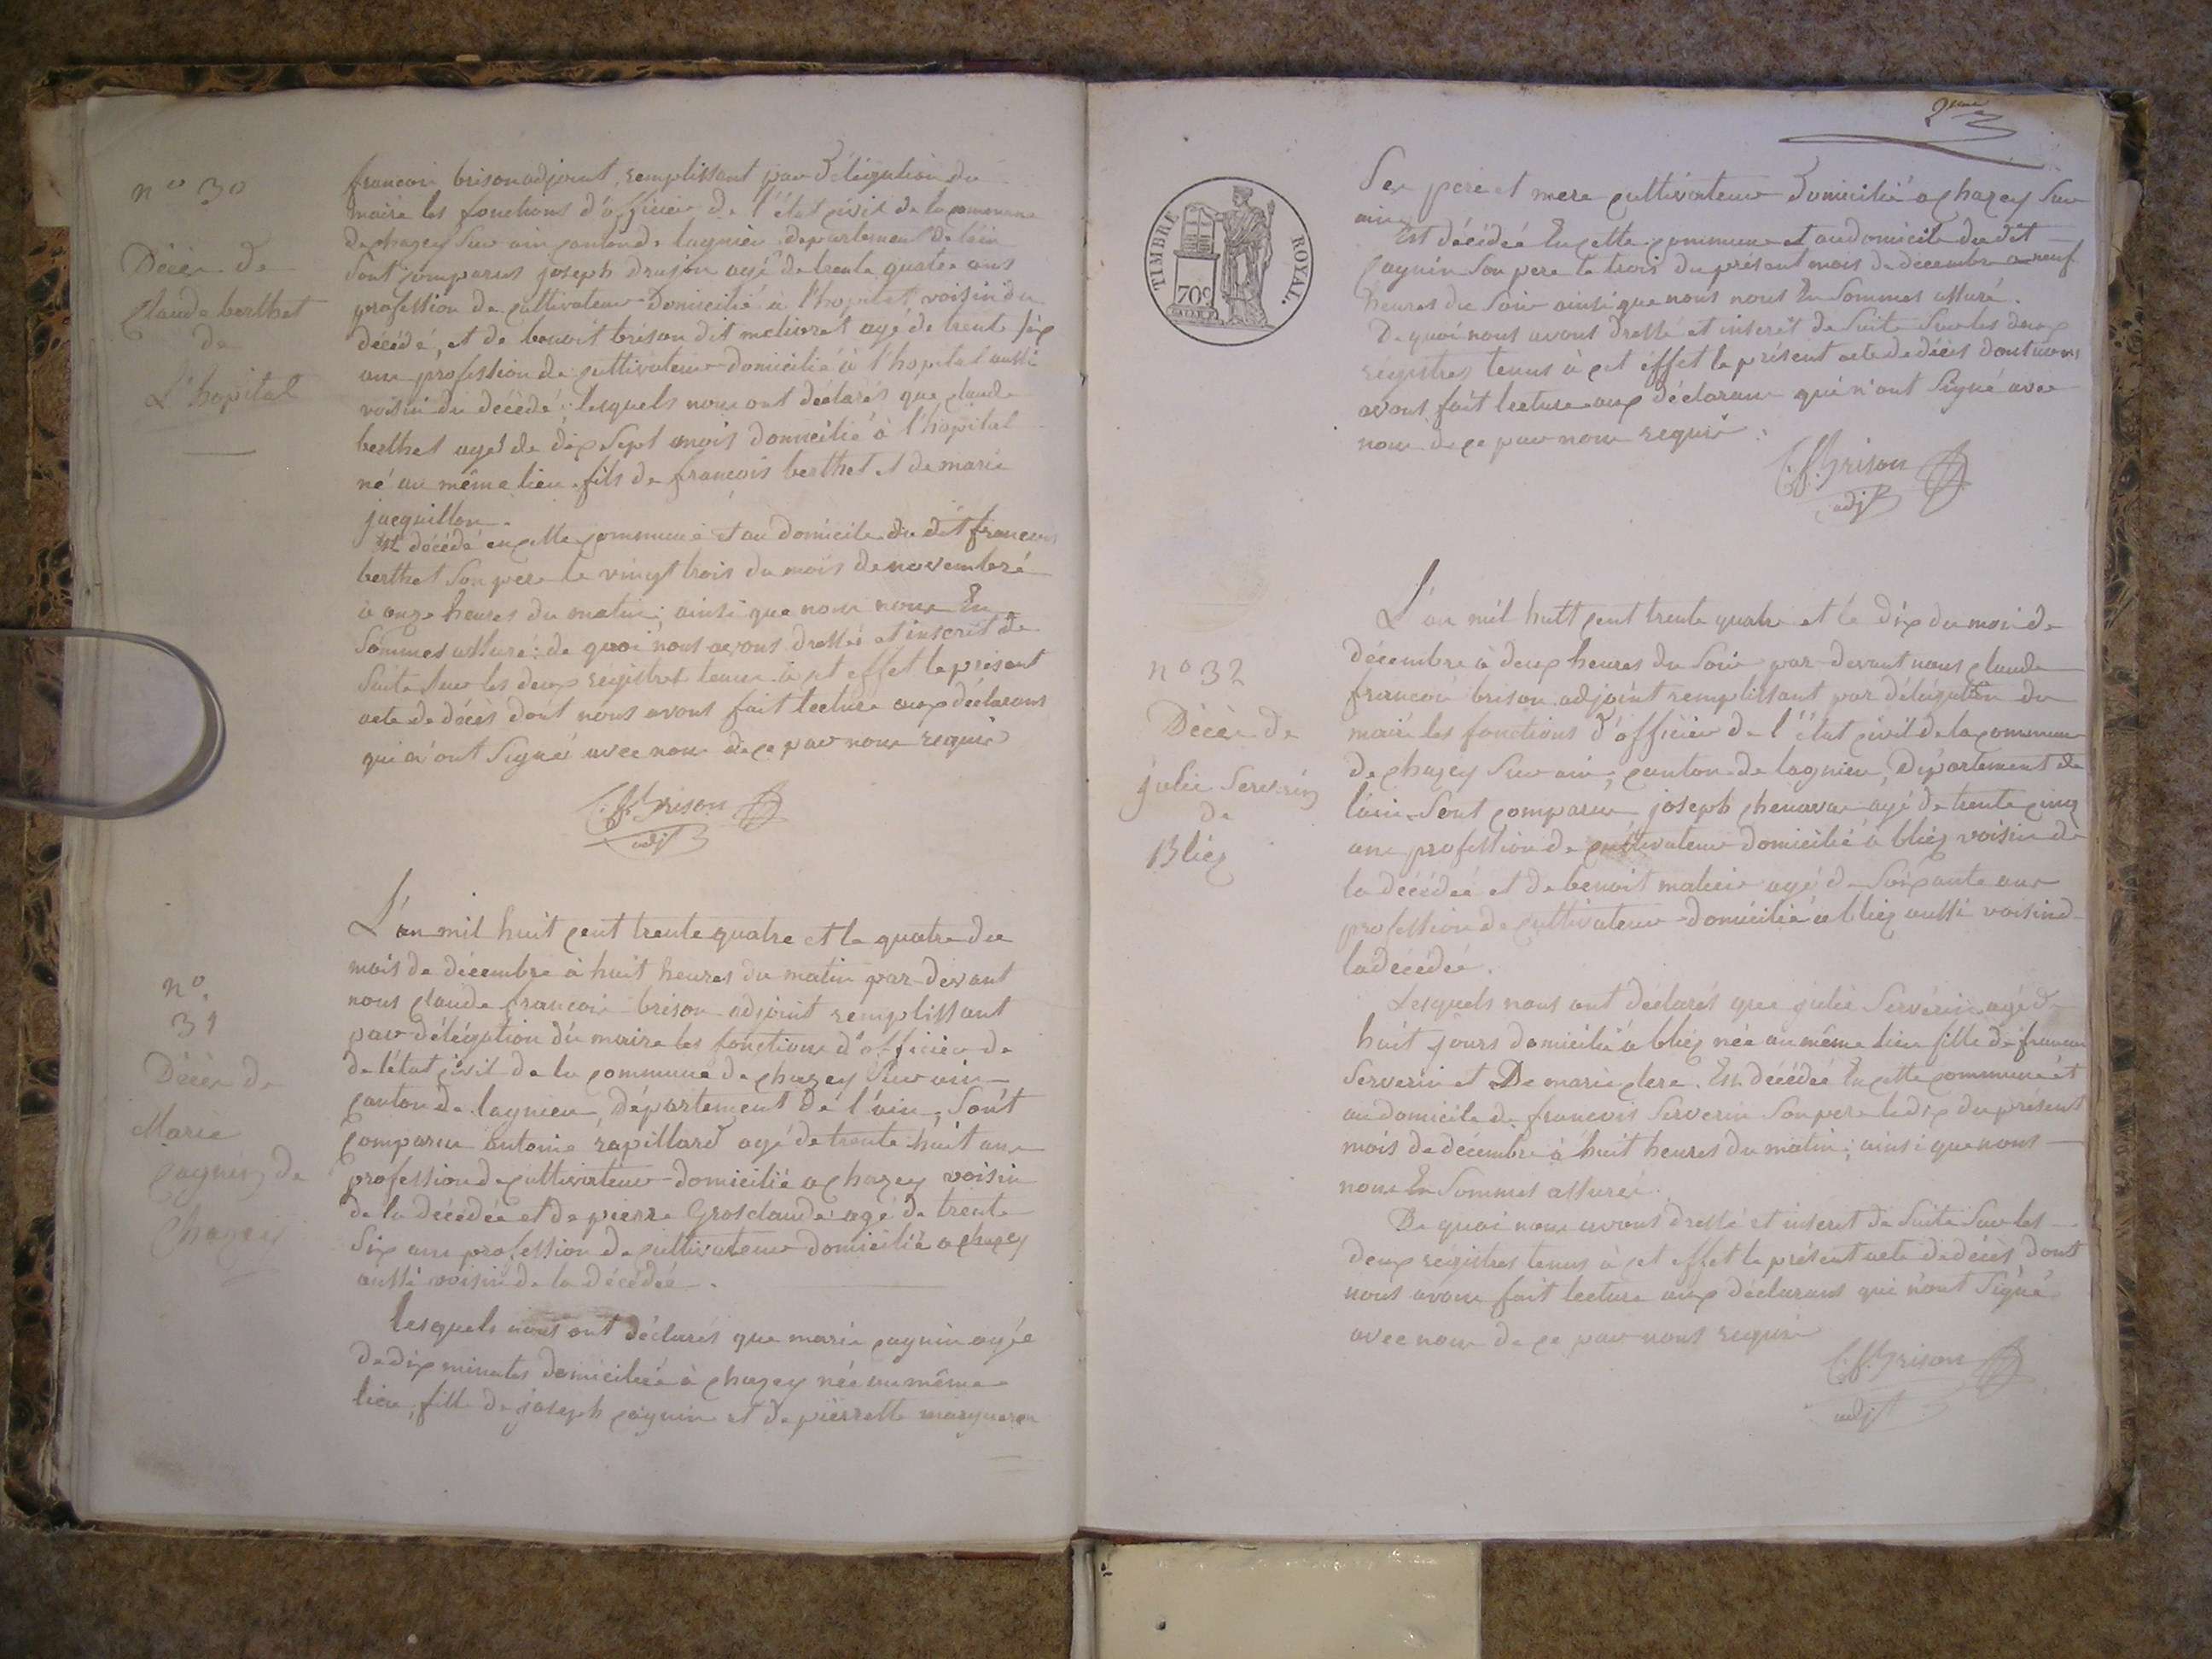 n° 30
Décès de
Claude berthet
de
L'hopital
francois brison adjoint, remplissant par délégation du
maire les fonctions d'officier de l'état civil de la commune
de chazey sur ain canton de lagnieu, département de l'ain
sont comparus joseph drujon agé de trente quatre ans
profession de cultivateur domicilié à l'hopital voisin du
décédé, et de benoit brison dit meliorét agé de trente six
ans profession de cultivateur domicilié à l'hopital aussi
voisin du décédé; lesquels nous ont déclarés que claude
berthet agé de dix sept mois domicilié à l'hopital
né au même lieu fils de francois berthet et de marie
jacquillon.
Est décédé en cette commune et au domicile du dit francois
berthet son pere le vingt trois du mois de novembre
à onze heures du matin; ainsi que nous nous En
sommes assuré: de quoi nous avons dressé et inscrit de
suite sur les deux registres tenus à cet effet le présent
acte de décès dont nous avons fait lecture aux déclarans
qui n'ont signé avec nous de ce par nous requis
C. f. Brison
adjt
n°.
31
Décès de
Marie
Cagnin de
Chazey
L'an mil huit cent trente quatre et le quatre du
mois de décembre à huit heures du matin par-devant
nous claude francois brison adjoint remplissant
par délégation du maire les fonctions d'officier de
de l'état civil de la commune de chazey sur ain
canton de lagnieu, département de l'ain, sont
comparus antoine rapillard agé de trente huit ans
profession de cultivateur domicilié a chazey voisin
de la décédée et de pierre Grosclaude agé de trente
six ans profession de cultivateur domicilié a chazey
aussi voisin de la décédée.
Lesquels nous ont déclarés que marie cagnin agée
de dix minutes domiciliée à chazey née au même
lieu, fille de joseph cagnin et de pierrette margueron
2eme
TIMBRE ROYAL.
70c
Ses pere et mere cultivateur domicilié a chazey sur
ain
Est décédée En cette commune et au domicile du dit
cagnin son pere le trois du présent mois de décembre a neuf
heures du soir ainsi que nous nous En sommes assuré.
De quoi nous avons dressé et inscrit de suite sur les deux
registres tenus à cet effet le présent acte de décès dont nous
avons fait lecture aux déclarans qui n'ont signé avec
nous de ce par nous requis.
C. f. Brison
adjt
n° 32
Décès de
julie Servérin
de
Bliez
L'an mil huit cent trente quatre et le dix du mois de
décembre à deux heures du soir par-devant nous claude
francois brison adjoint remplissant par délégation du
maire les fonctions d'officier de l'état civil de la commune
de chazey sur ain, canton de lagnieu, Département de
l'ain. Sont comparus joseph chenavas agé de trente cinq
ans profession de cultivateur domicilié à bliez voisin de
la décédée et de benoit malein agé de soixante ans
profession de cultivateur domicilié a bliez aussi voisin d
la décédée.
Lesquels nous ont déclarés que julie Servérin agé d
huit jours domicilié à bliez née au même lieu fille de francois
Serverin et De marie clere. Est décédée En cette commune et
au domicile de francois Serverin son pere le dix du présent
mois de décembre à huit heures du matin; ainsi que nous
nous En sommes assuré.
De quoi nous avons dressé et inscrit de suite sur les
deux registres tenus à cet effet le présent acte de décès dont
nous avons fait lecture aux déclarans qui n'ont signé
avec nous de ce par nous requis
C. f. Brison
adjt